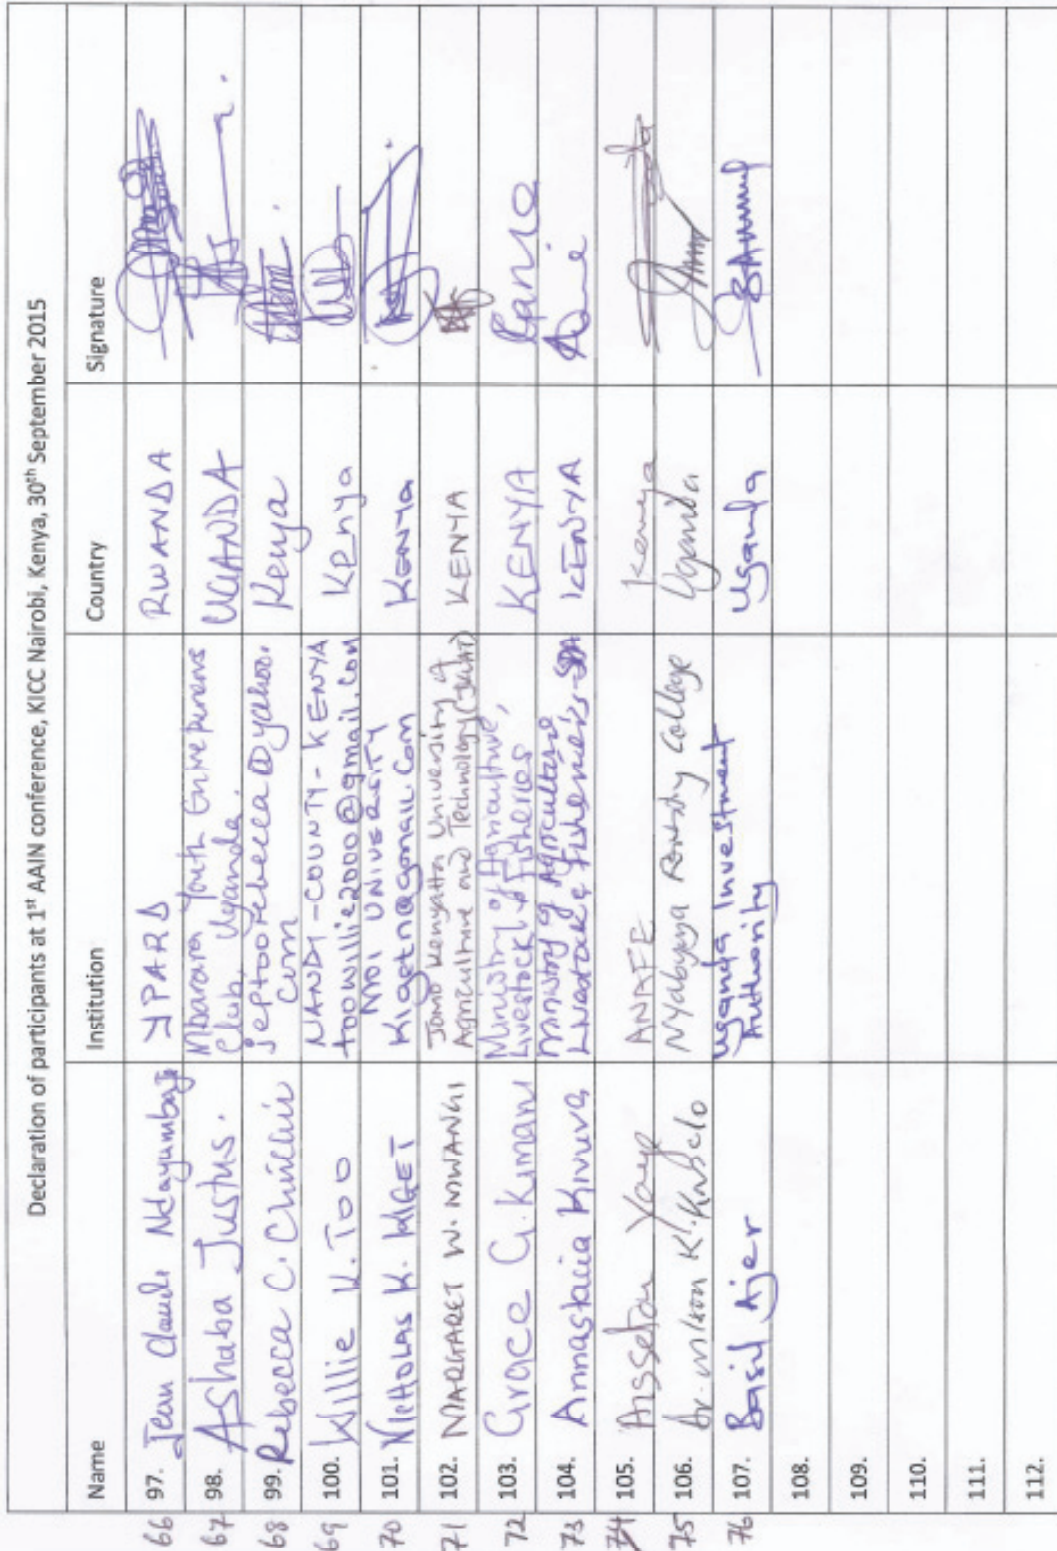 Declaration of participants at 1st AAIN conference, KICC Nairobi, Kenya, 30th September 2015
Name Institution Country Signature
66 97. Jean Claude Ndayumbaje YPARD RWANDA
67 98. Ashaba Justus. Mbarara Youth Entrepreneurs UGANDA
Club, Uganda.
68 99. Rebecca C. jeptoorebecca@yahoo. Kenya
com
69 100. Willie K. Too NANDI-COUNTY-KENYA Kenya
toowillie2000@gmail.com
70 101. Nicholas K. KIGET MOI UNIVERSITY KENYA
Kigetn@gmail.com
71 102. MARGARET W. MWANGI Jomo Kenyatta University of KENYA
Agriculture and Technology (JKUAT)
72 103. Grace G. Kimani Ministry of Agriculture, KENYA
Livestock & Fisheries
73 104. Annastacia Kivuva Ministry of Agriculture KENYA
Livestock & Fisheries-SDA
74 105. Aisseton ANAFE Kenya
75 106. Dr. Wilson K. Nyabyeya Forestry College Uganda
76 107. Basil Ajer Uganda Investment Uganda
Authority
108.
109.
110.
111.
112.